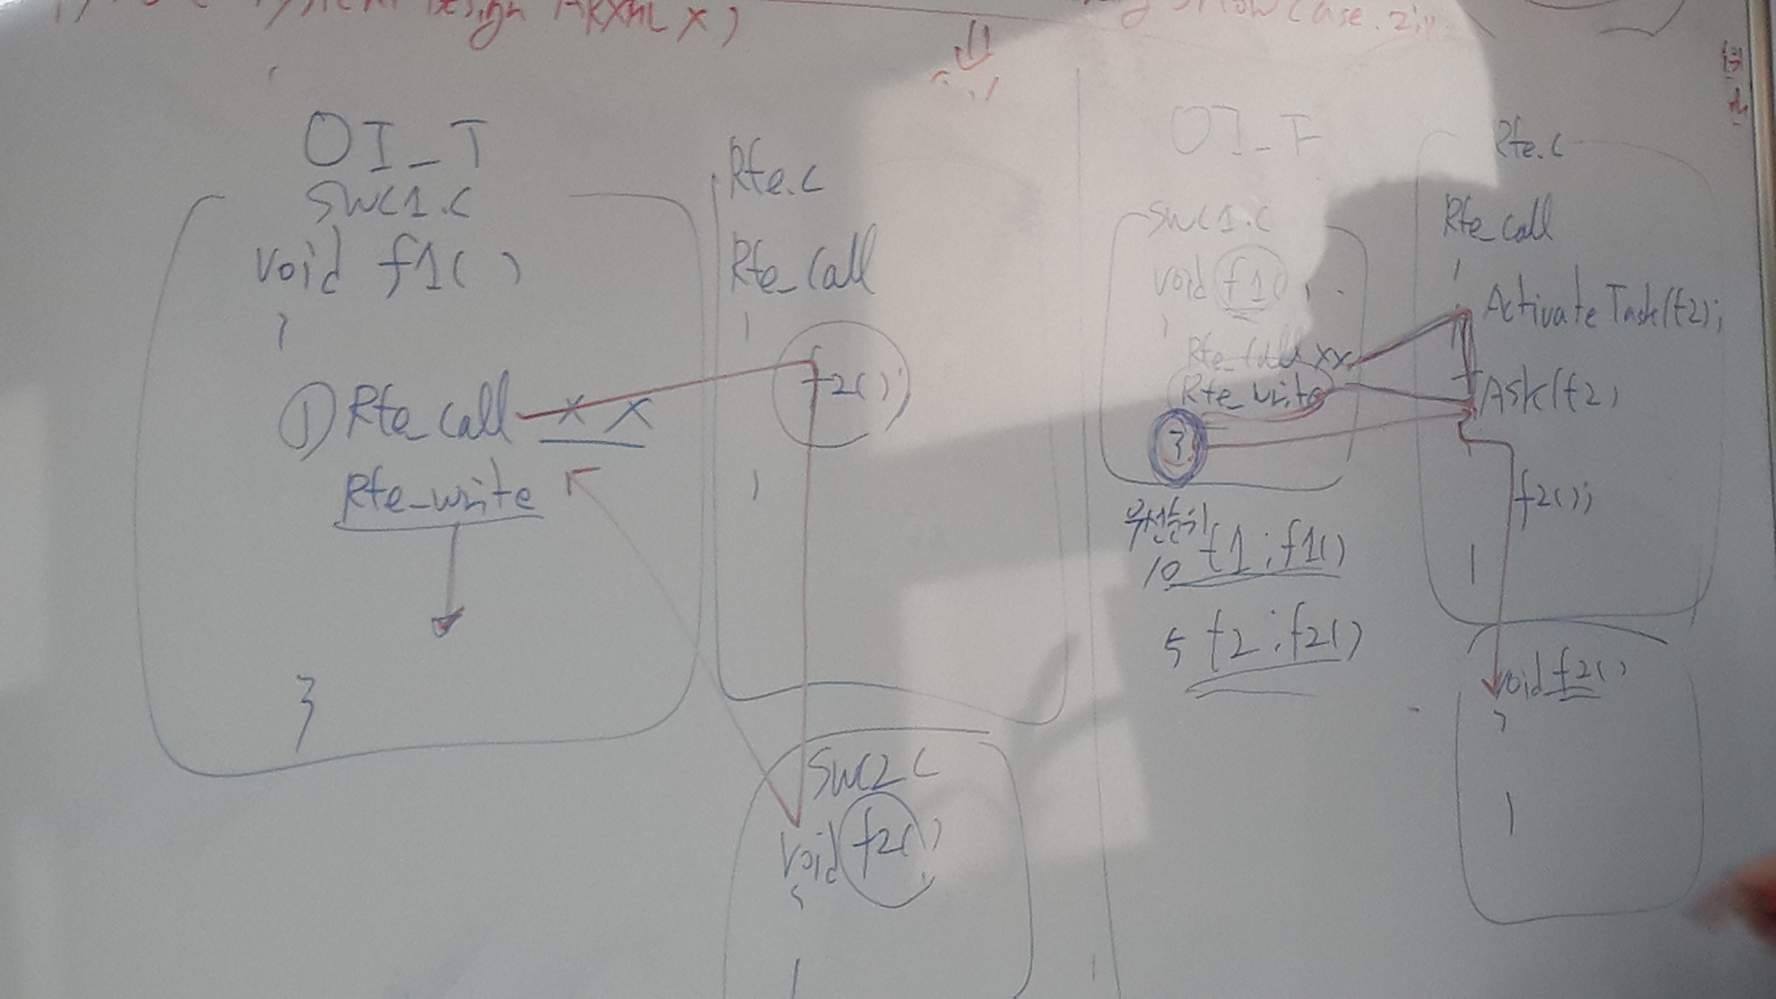 System Design ARXML X)
showcase.zip
OI_T
SWC1.C
void f1()
{
① Rte_call x x
Rte_write
}
Rte.c
Rte_call
{
f2();
}
SWC2.C
void f2()
{
OI_F
SWC1.C
void f1()
{
Rte_call xx
Rte_write
}
우선순위
10 t1: f1()
5 t2: f2()
Rte.c
Rte_call
{
Activate Task(t2);
Task(t2)
f2();
}
void f2()
{
}